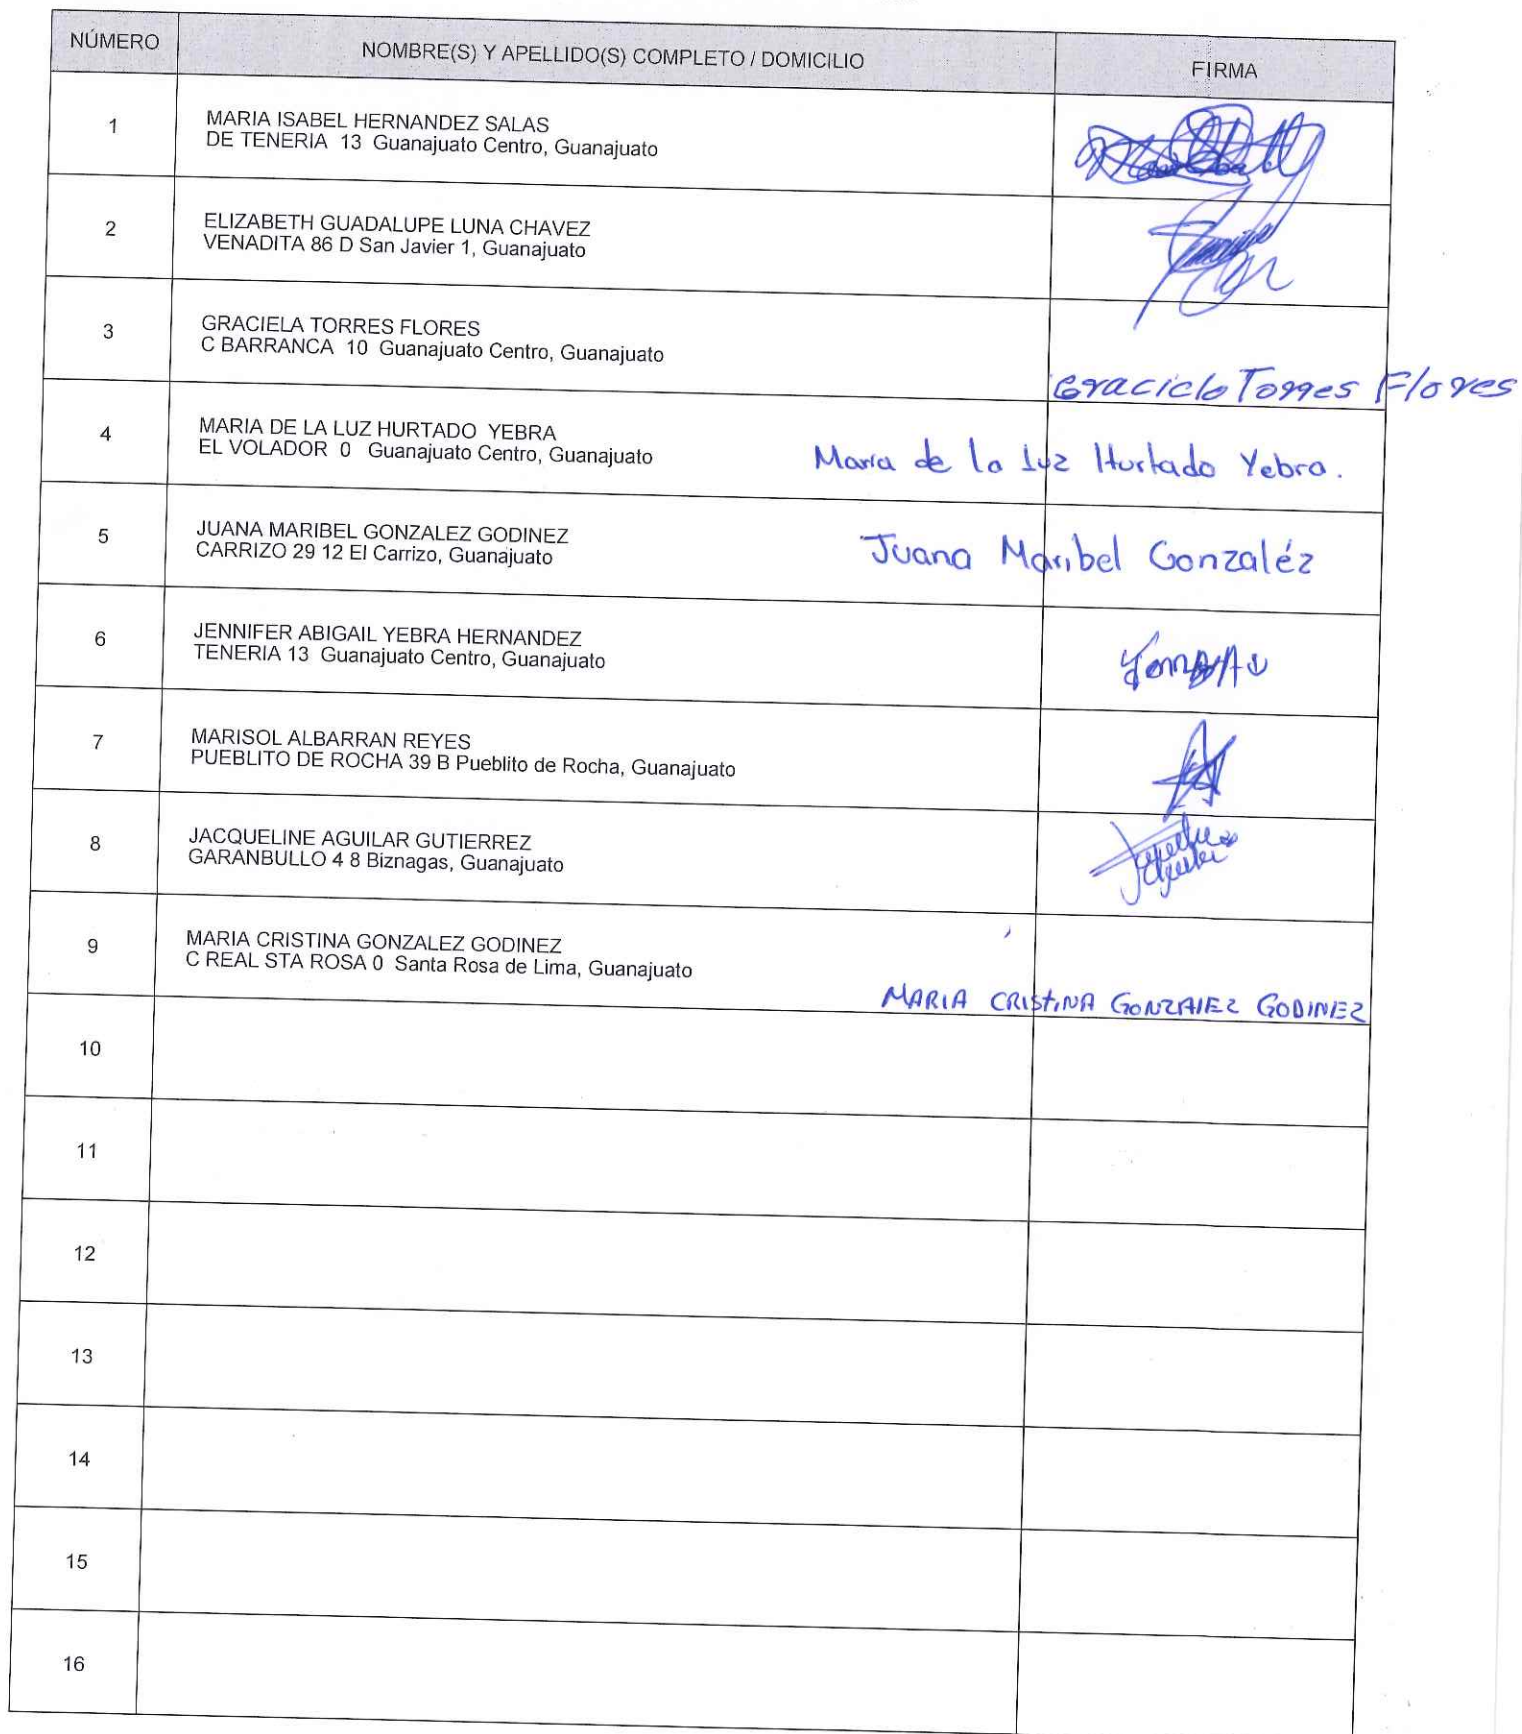 NÚMERO NOMBRE(S) Y APELLIDO(S) COMPLETO / DOMICILIO FIRMA
1 MARIA ISABEL HERNANDEZ SALAS
DE TENERIA 13 Guanajuato Centro, Guanajuato
2 ELIZABETH GUADALUPE LUNA CHAVEZ
VENADITA 86 D San Javier 1, Guanajuato
3 GRACIELA TORRES FLORES
C BARRANCA 10 Guanajuato Centro, Guanajuato
Graciela Torres Flores
4 MARIA DE LA LUZ HURTADO YEBRA
EL VOLADOR 0 Guanajuato Centro, Guanajuato
Maria de la Luz Hurtado Yebra.
5 JUANA MARIBEL GONZALEZ GODINEZ
CARRIZO 29 12 El Carrizo, Guanajuato
Juana Maribel Gonzaléz
6 JENNIFER ABIGAIL YEBRA HERNANDEZ
TENERIA 13 Guanajuato Centro, Guanajuato
7 MARISOL ALBARRAN REYES
PUEBLITO DE ROCHA 39 B Pueblito de Rocha, Guanajuato
8 JACQUELINE AGUILAR GUTIERREZ
GARANBULLO 4 8 Biznagas, Guanajuato
9 MARIA CRISTINA GONZALEZ GODINEZ
C REAL STA ROSA 0 Santa Rosa de Lima, Guanajuato
MARIA CRISTINA GONZALEZ GODINEZ
10
11
12
13
14
15
16